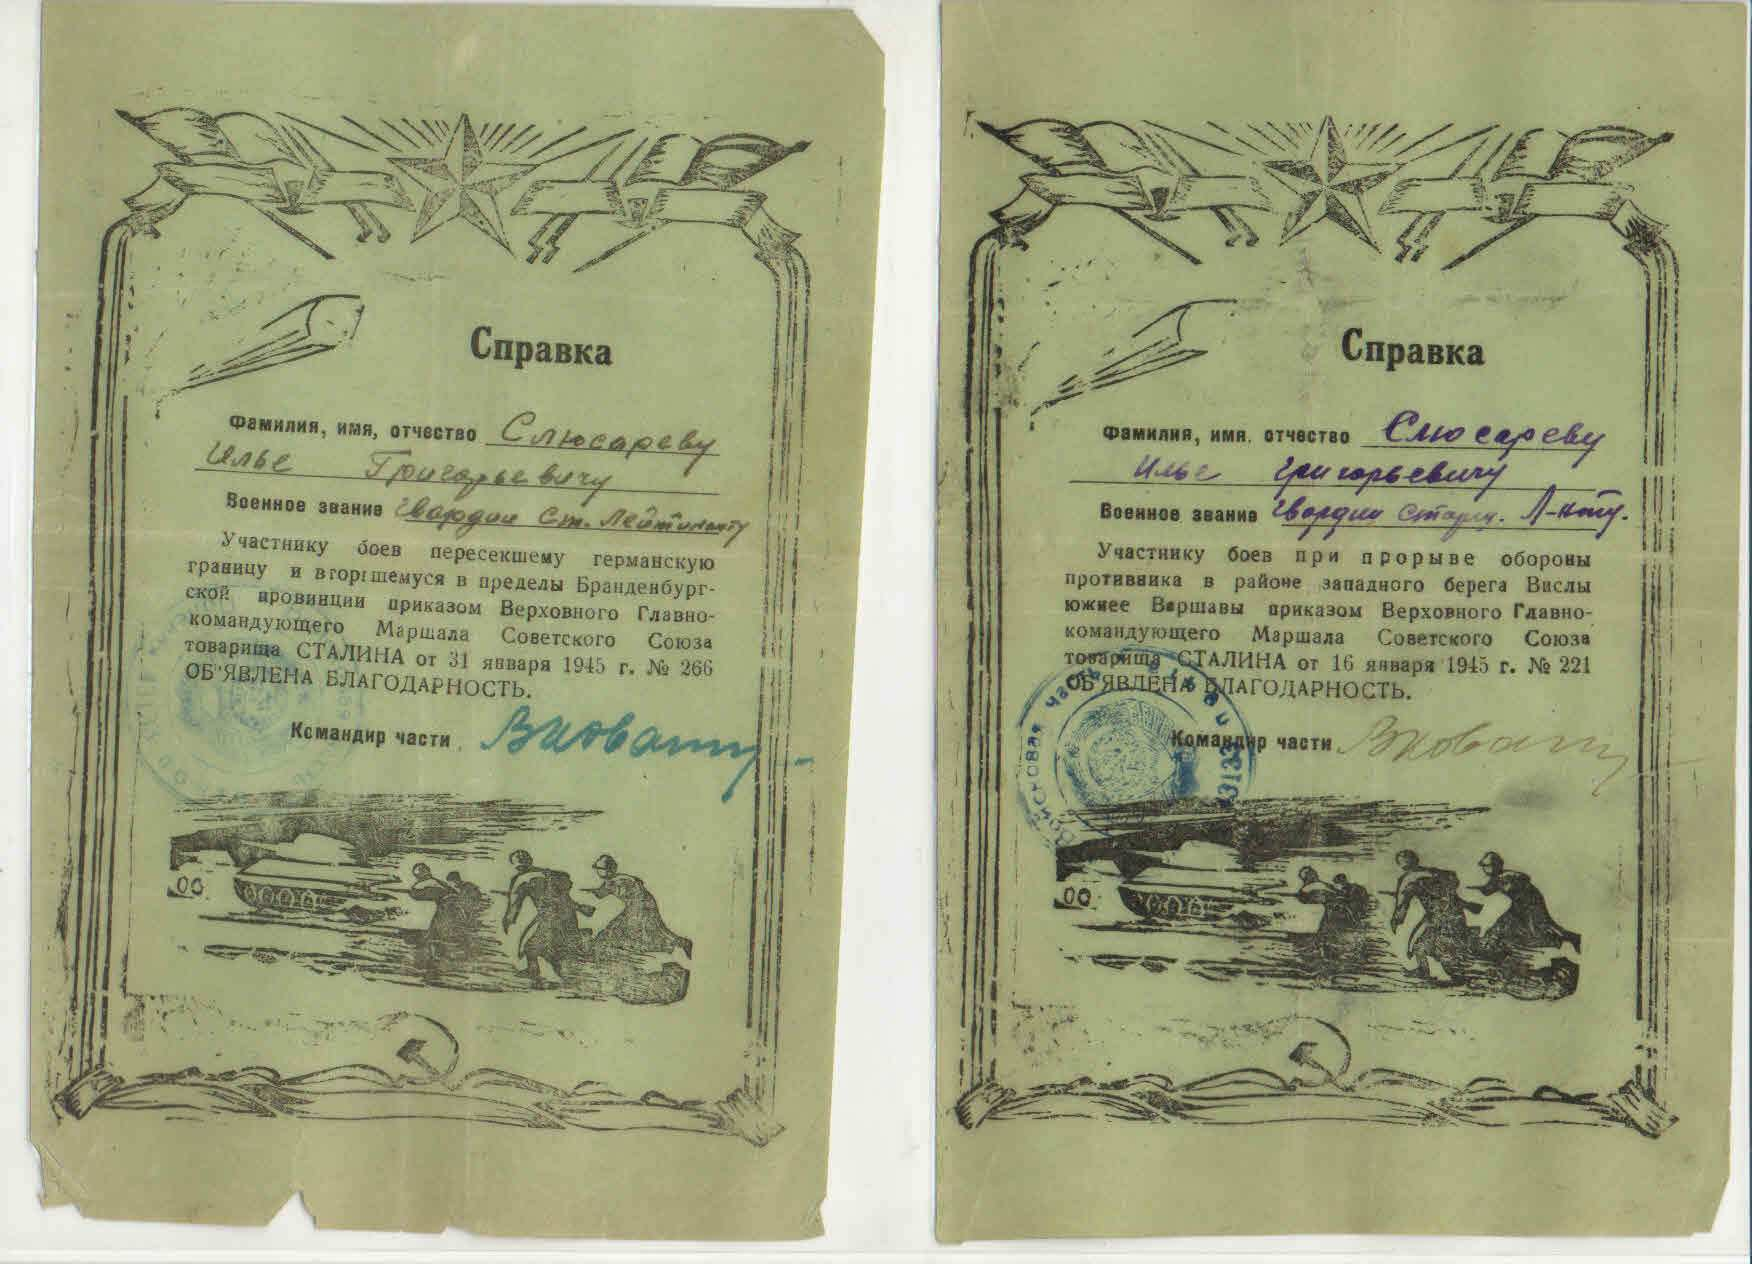 Справка
Фамилия, имя, отчество Слюсареву
Илье Григорьевичу
Военное звание Гвардии ст. лейтинанту
Участнику боев пересекшему германскую
границу и вторгшемуся в пределы Бранденбург-
ской провинции приказом Верховного Главно-
командующего Маршала Советского Союза
товарища СТАЛИНА от 31 января 1945 г. № 266
ОБ"ЯВЛЕНА БЛАГОДАРНОСТЬ.
Командир части
Справка
Фамилия, имя. отчество Слюсареву
Илье Григорьевичу
Военное звание Гвардии старш. Л-нту.
Участнику боев при прорыве обороны
противника в районе западного берега Вислы
южнее Варшавы приказом Верховного Главно-
командующего Маршала Советского Союза
товарища СТАЛИНА от 16 января 1945 г. № 221
ОБ"ЯВЛЕНА БЛАГОДАРНОСТЬ.
Командир части
Войсковая часть